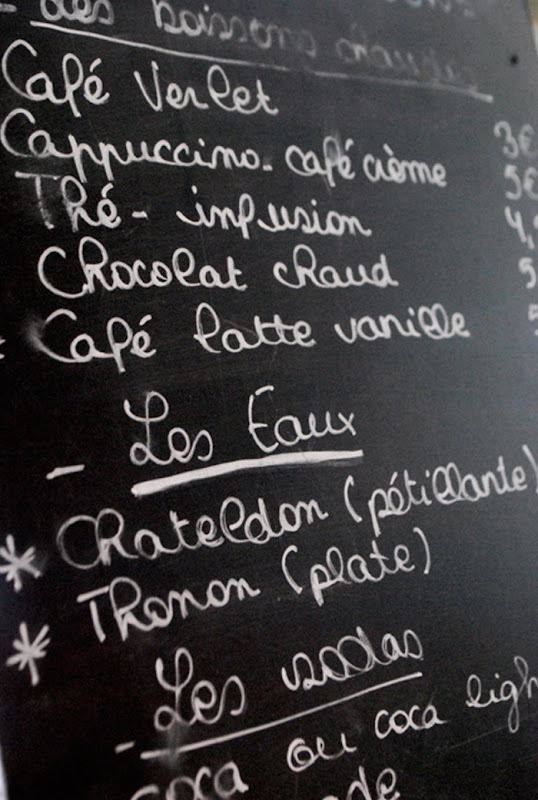 - Les boissons chaudes
Café Verlet 3€
Cappuccino - café crème 5€
Thé - infusion 4,
Chocolat chaud 5
Café latte vanille 5
- Les Eaux
* Chateldon (pétillante)
* Thonon (plate)
- Les sodas
coca ou coca ligh